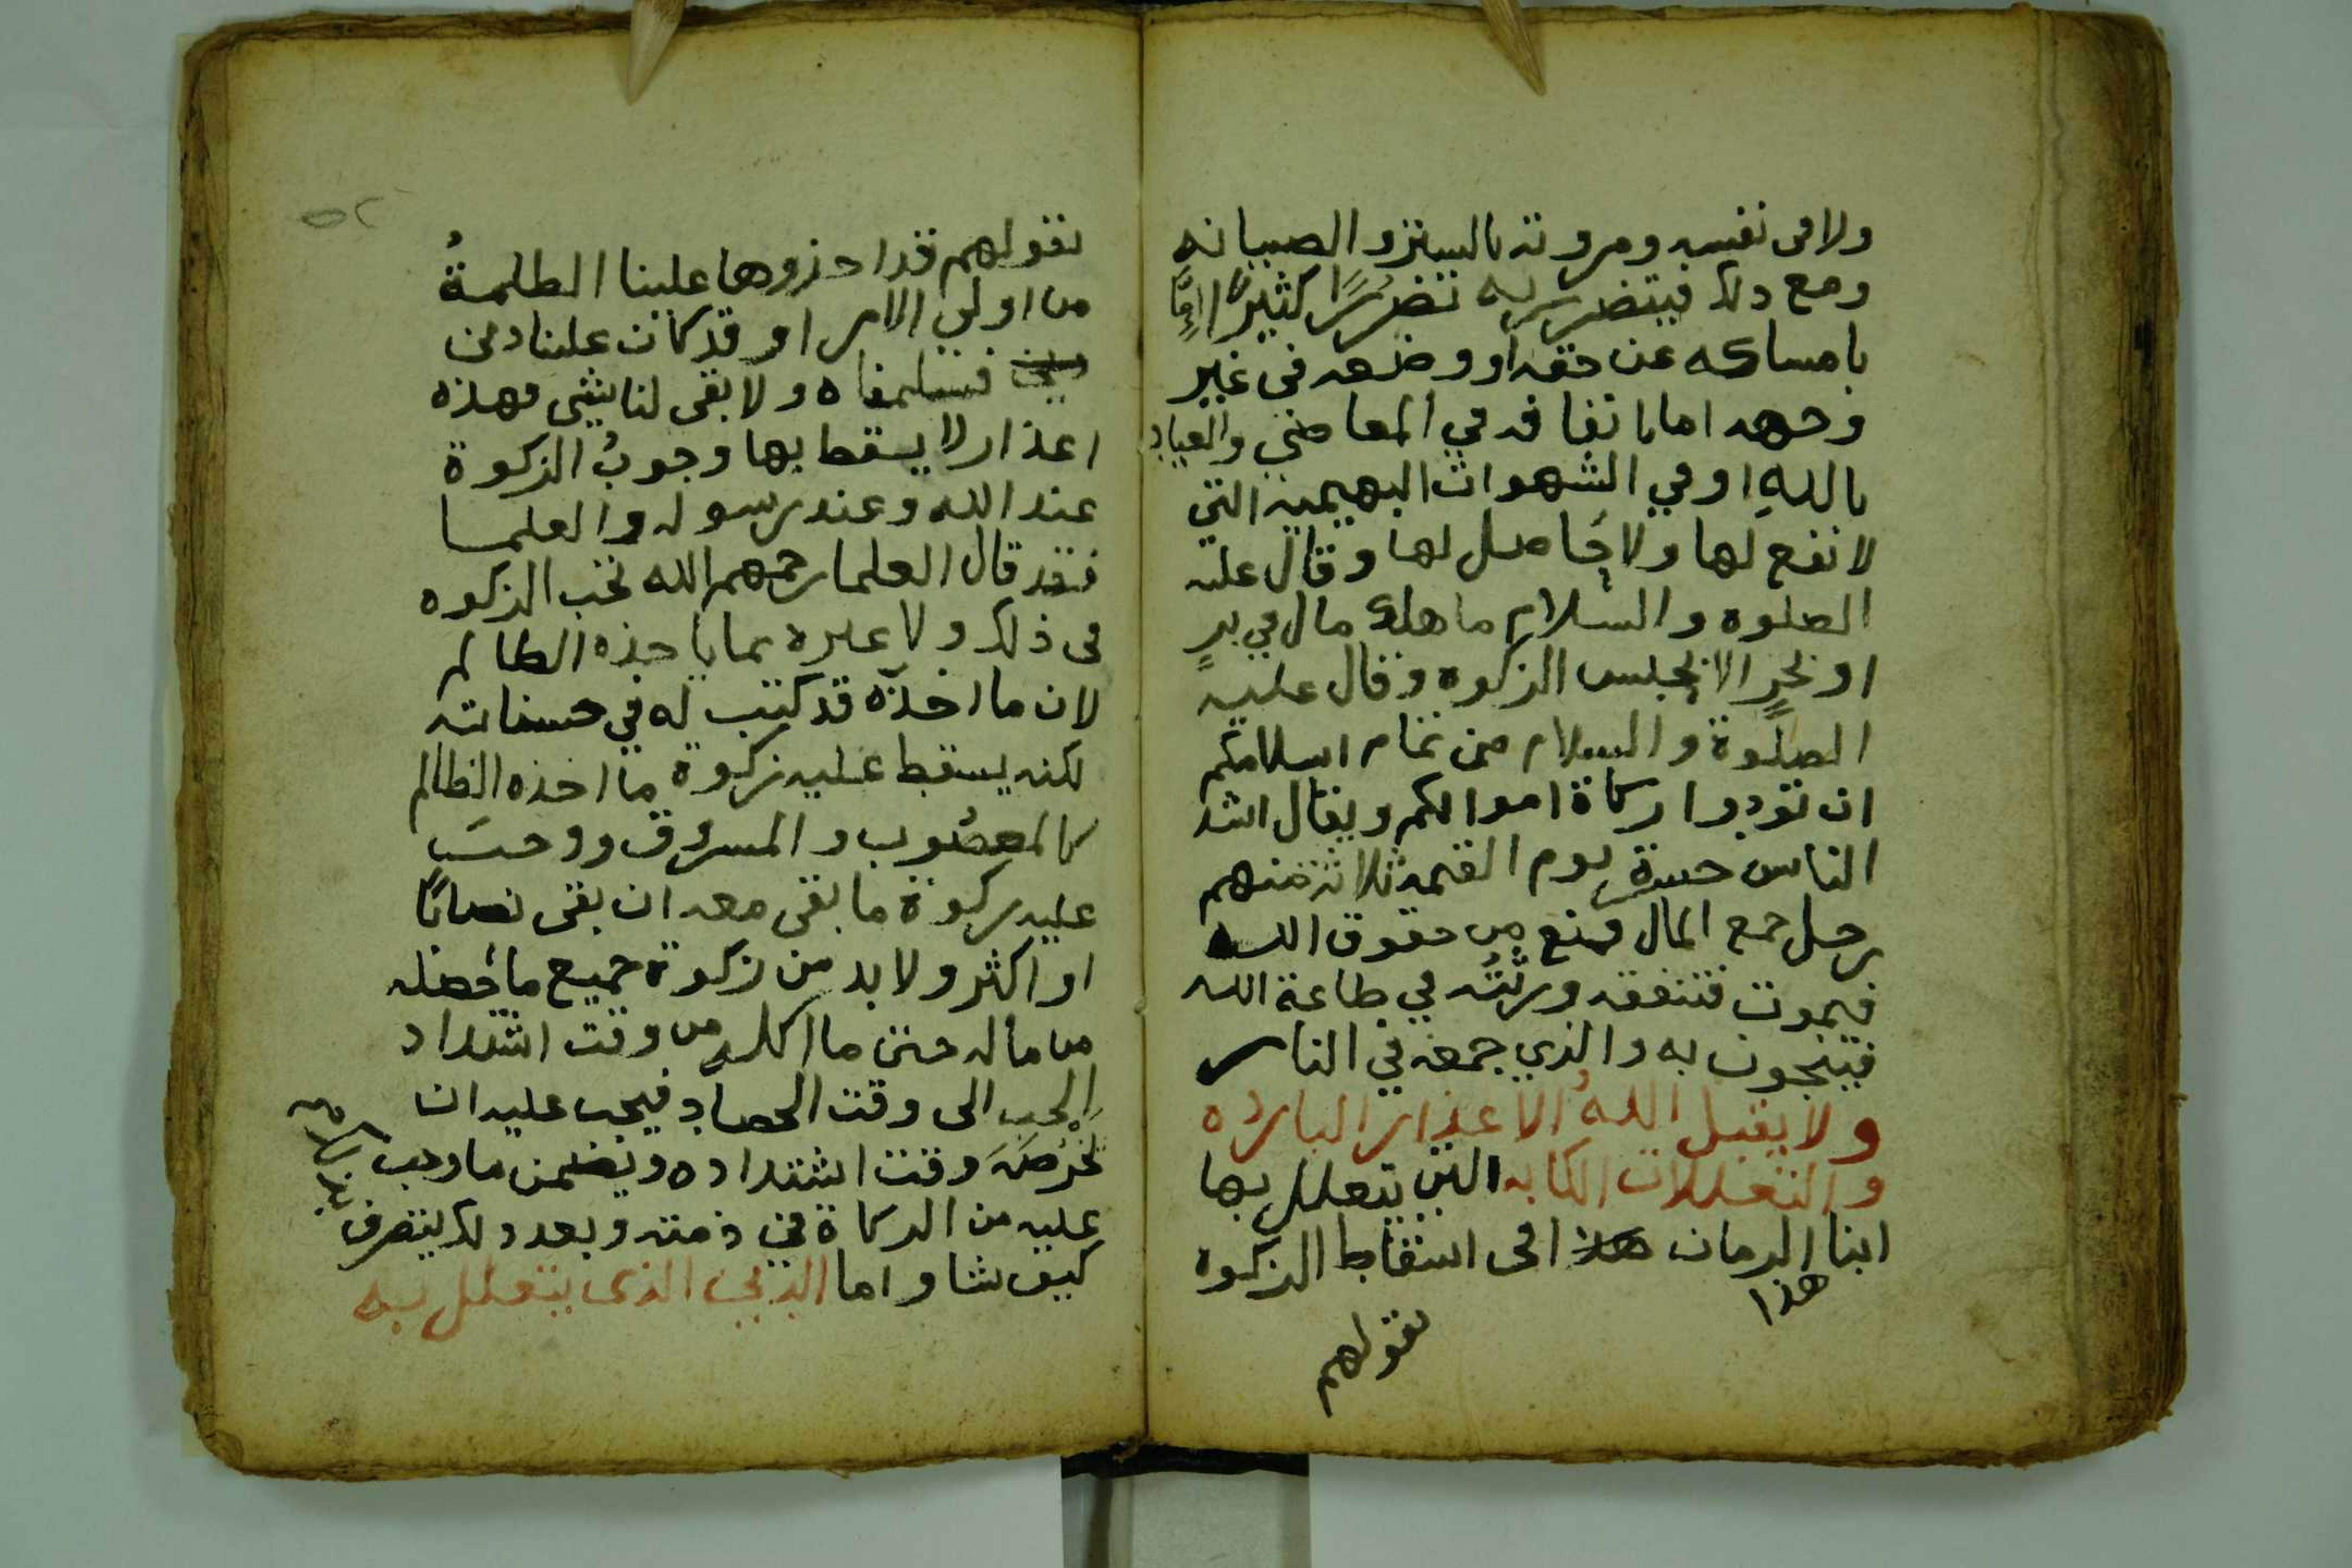 ولا فى نفسه ومروته بالستر والصيانه
ومع ذلك فيتضرر به تضررًا كثيرًا امّا
بامساكه عن حقه او وضعه فى غير
وجهه اما بانفاقه في المعاصي والعياذ
باللهِ او في الشهوات البهيميه التي
لا نفع لها ولا حَاصل لها وقال عليه
الصلوه والسلام ما هلك مال في برٍ
او بحرٍ الا بحبس الزكوه وقال عليه
الصلوة والسلام من تمام اسلامكم
ان تؤدوا زكاة اموالكم ويقال اشد
الناس حسرة يوم القيمه ثلاثة منهم
رجل جمع المال فمنع من حقوق الله
فيموت فتنفقه ورثتُه في طاعة الله
فينجون به والذي جمعه في النار
ولا يقبل اللهُ الاعذار البارده
والتعللات الكاذبه التى يتعلل بها
ابنا الزمان هذا فى اسقاط الزكوه
هذا
بقولهم
٥٢
بقولهم قد اخذوها علينا الظلمةُ
من اولي الامر او قد كانت علينا دين
فسلمناه ولا بقى لنا شي فهذه
اعذار لا يسقط بها وجوبُ الزكوة
عند الله وعند رسوله والعلما
فقد قال العلما رحمهم الله تجب الزكوه
فى ذلك ولا عبرة بما ياخذه الظالم
لان ما اخذه قد كتب له في حسناته
لكنه يسقط عليه زكوة ما اخذه الظالم
كالمغصُوب والمسروق ووجبَ
عليه زكوة ما بقى معه ان بقى نصابًا
او اكثر ولا بد من زكوة جميع ما حصله
من ماله حتى ما اكله من وقت اشتداد
الحب الى وقت الحصاد فيجب عليه ان
يخرُصَهُ وقت اشتداده ويضمن ما وجب
عليه من الزكاة في ذمته وبعد ذلك يتصرف
كيف شا واما الدين الذى يتعلل به